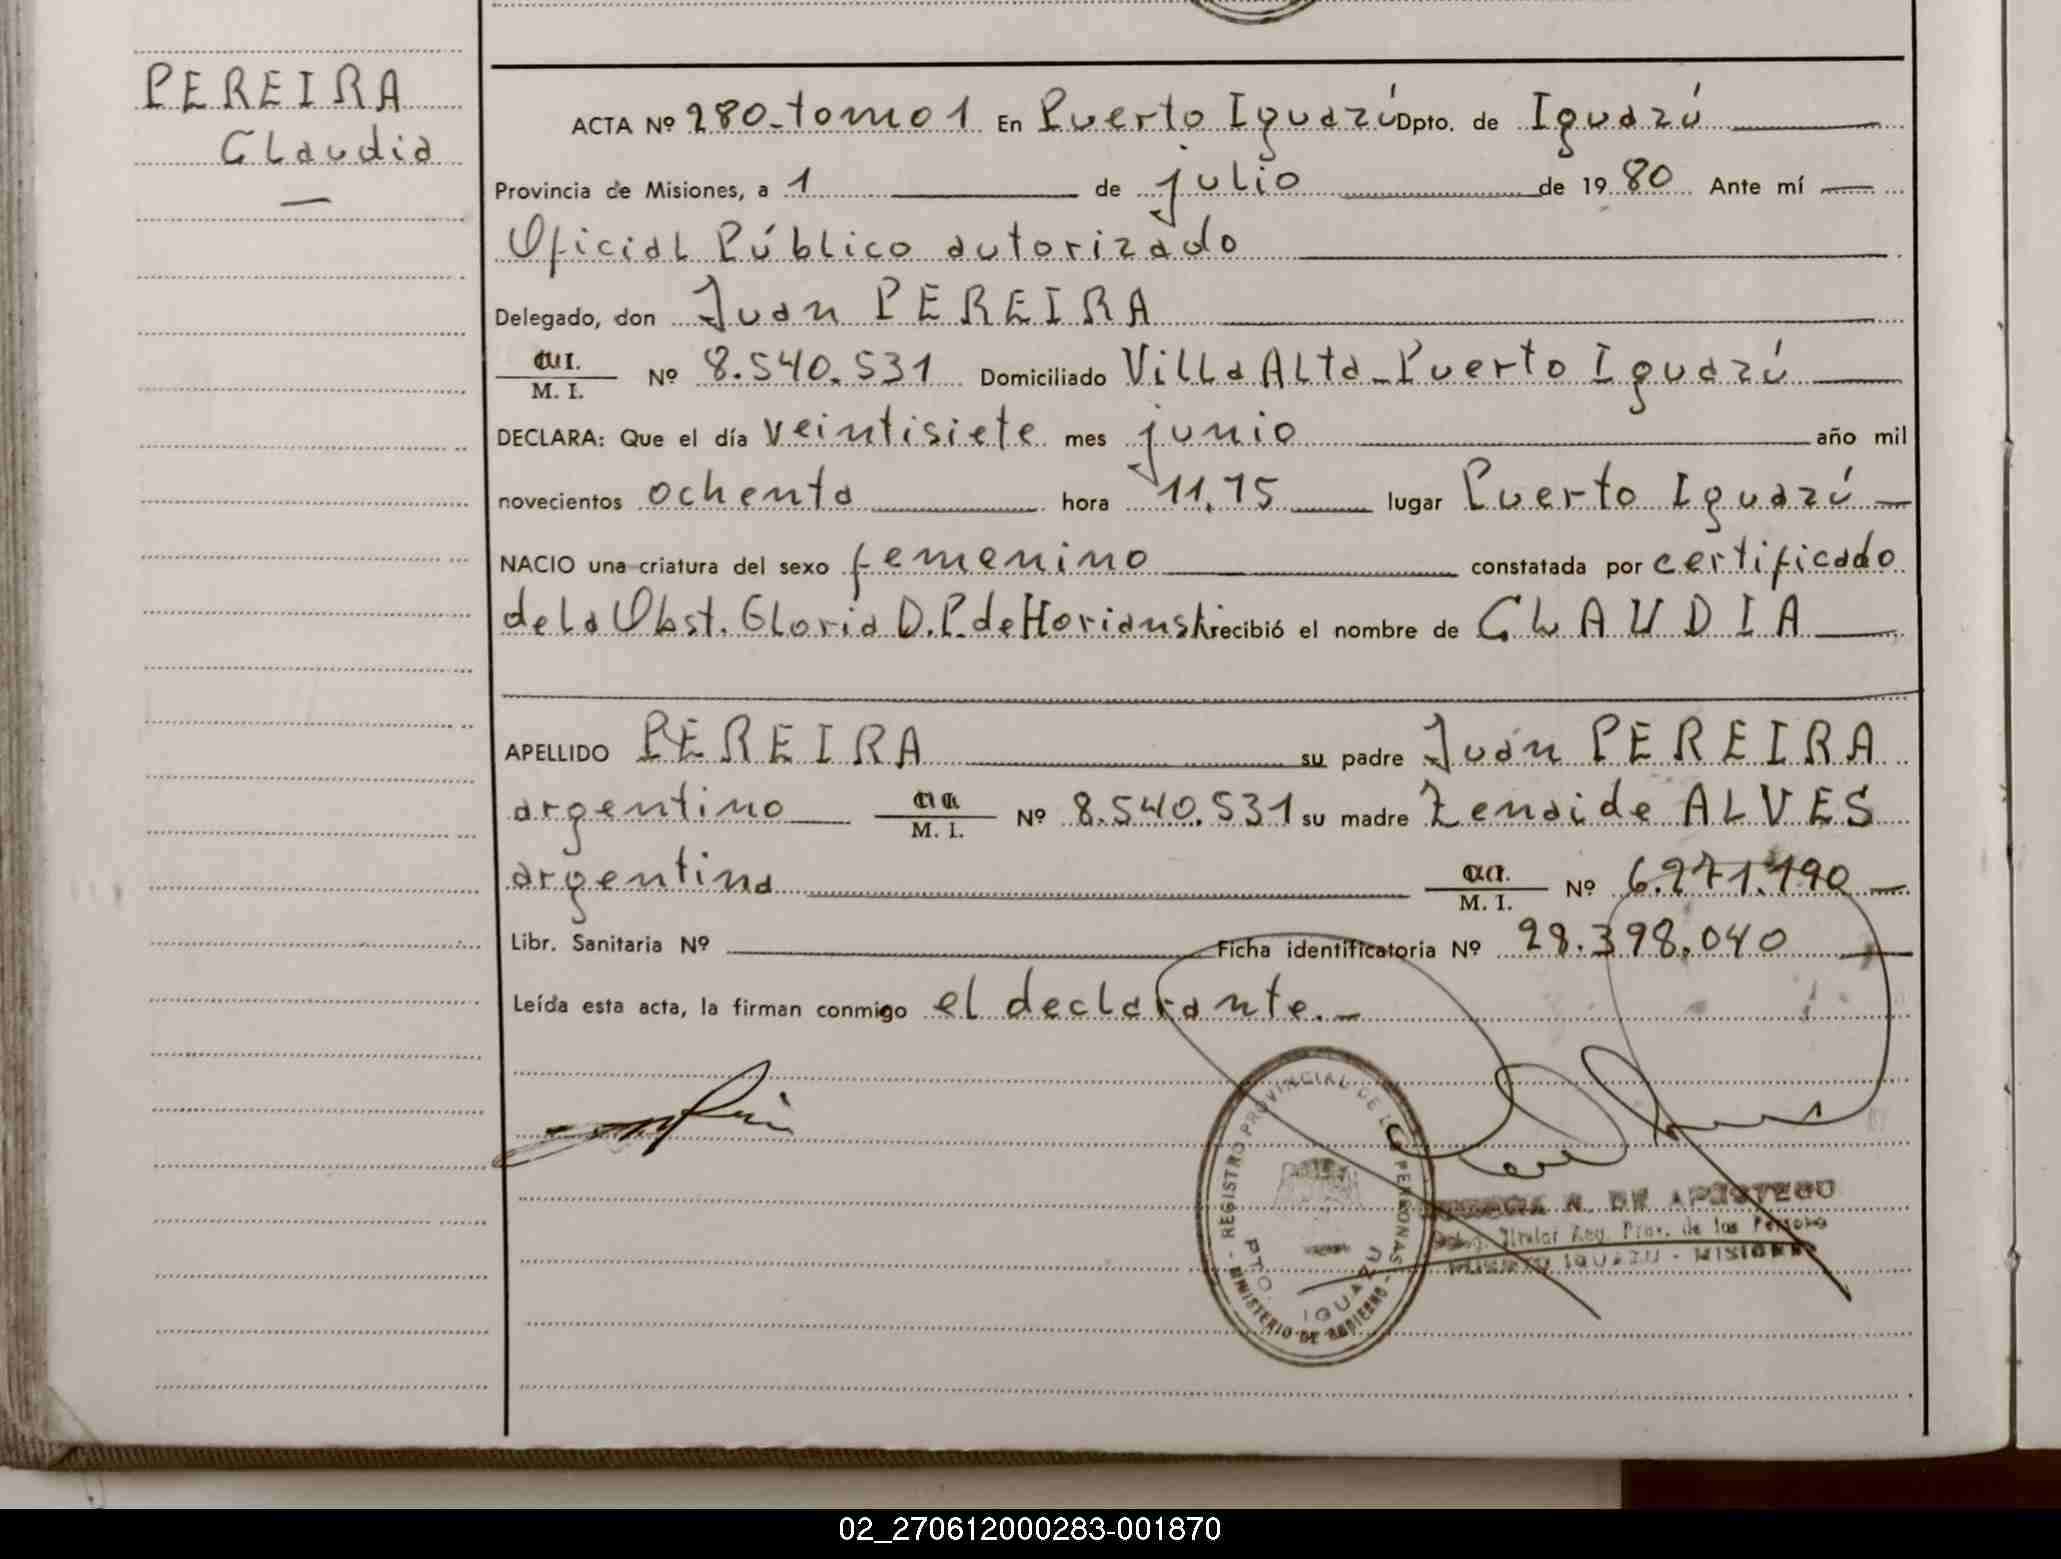 PEREIRA
Claudia
ACTA Nº 280-tomo 1 En Puerto Iguazú Dpto. de Iguazú
Provincia de Misiones, a 1 de julio de 1980 Ante mí
Oficial Público autorizado
Delegado, don Juan PEREIRA
M. I. Nº 8.540.531 Domiciliado Villa Alta - Puerto Iguazú
DECLARA: Que el día veintisiete mes junio año mil
novecientos ochenta hora 11,15 lugar Puerto Iguazú
NACIO una criatura del sexo femenino constatada por certificado
de la Obst. Gloria D.P. de Horianski recibió el nombre de CLAUDIA
APELLIDO PEREIRA su padre Juan PEREIRA
argentino M. I. Nº 8.540.531 su madre Zenaide ALVES
argentina M. I. Nº
Libr. Sanitaria Nº Ficha identificatoria Nº 28.398.040
Leída esta acta, la firman conmigo el declarante.-
REGISTRO PROVINCIAL DE LAS PERSONAS
PTO. IGUAZU
MINISTERIO DE GOBIERNO
N. DE
Titular Reg. Prov. de las Persona
PUERTO IGUAZU - MISIONES
02_270612000283-001870